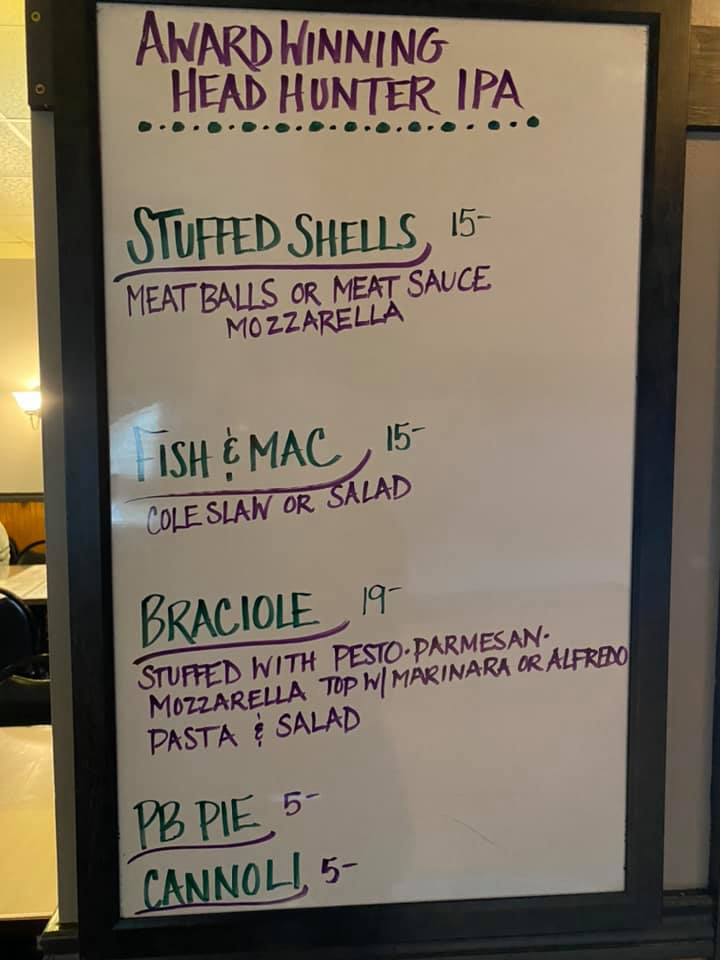 AWARD WINNING
HEAD HUNTER IPA
STUFFED SHELLS 15-
MEATBALLS OR MEAT SAUCE
MOZZARELLA
FISH & MAC 15-
COLESLAW OR SALAD
BRACIOLE 19-
STUFFED WITH PESTO·PARMESAN·
MOZZARELLA TOP W/ MARINARA OR ALFREDO
PASTA & SALAD
PB PIE 5-
CANNOLI 5-